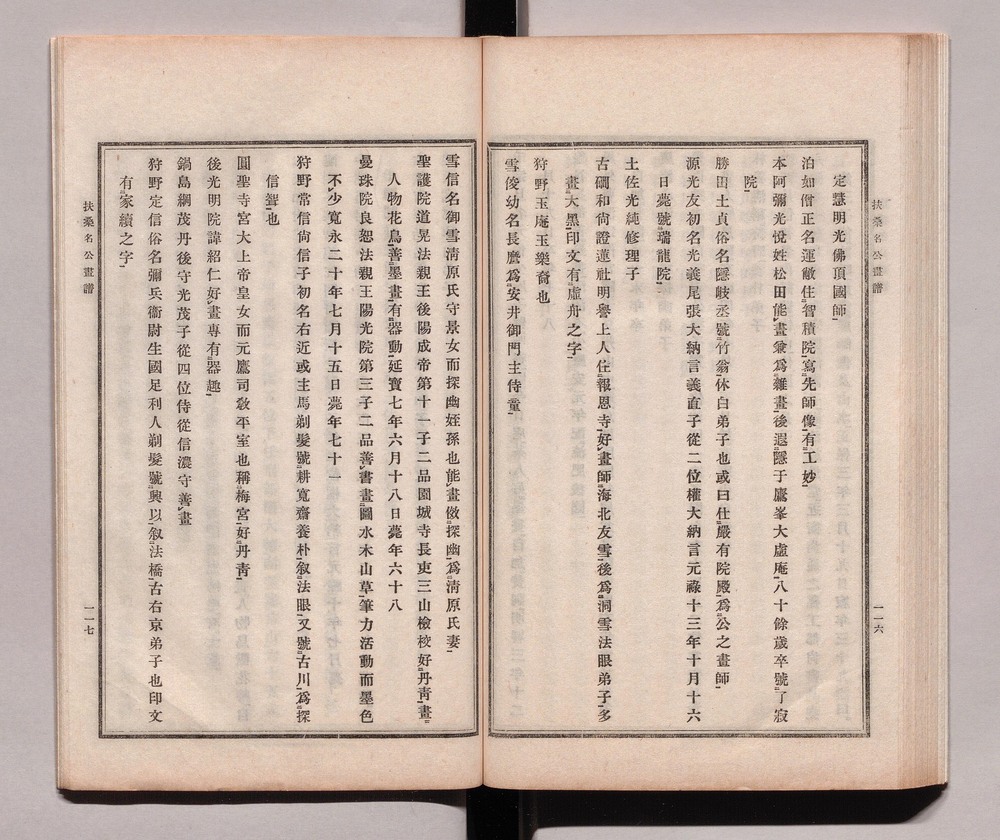 扶桑名公畫譜
一一六
定慧明光佛頂國師
泊如僧正名運敞住智積院寫先師像有工妙
本阿彌光悅姓松田能畫兼爲雜畫後退隱于鷹峯大虛庵八十餘歲卒號了寂
院
勝田土貞俗名隱岐丞號竹翁休白弟子也或曰仕嚴有院殿爲公之畫師
源光友初名光義尾張大納言義直子從二位權大納言元祿十三年十月十六
日薨號瑞龍院
土佐光純修理子
古磵和尙證蓮社明譽上人住報恩寺好畫師海北友雪後爲洞雪法眼弟子多
畫大黑印文有虛舟之字
狩野玉庵玉樂裔也
雪俊幼名長麿爲安井御門主侍童
雪信名御雪淸原氏守景女而探幽姪孫也能畫倣探幽爲淸原氏妻
聖護院道晃法親王後陽成帝第十一子二品園城寺長吏三山檢校好丹靑畫
人物花鳥善墨畫有器動延寶七年六月十八日薨年六十八
曼珠院良恕法親王陽光院第三子二品善書畫圖水木山草筆力活動而墨色
不少寬永二十年七月十五日薨年七十一
狩野常信尙信子初名右近或主馬剃髮號耕寬齋養朴敘法眼又號古川爲探
信聟也
圓聖寺宮大上帝皇女而元鷹司敎平室也稱梅宮好丹靑
後光明院諱紹仁好畫專有器趣
鍋島綱茂丹後守光茂子從四位侍從信濃守善畫
狩野定信俗名彌兵衞尉生國足利人剃髮號興以敘法橋古右京弟子也印文
有家續之字
扶桑名公畫譜
一一七